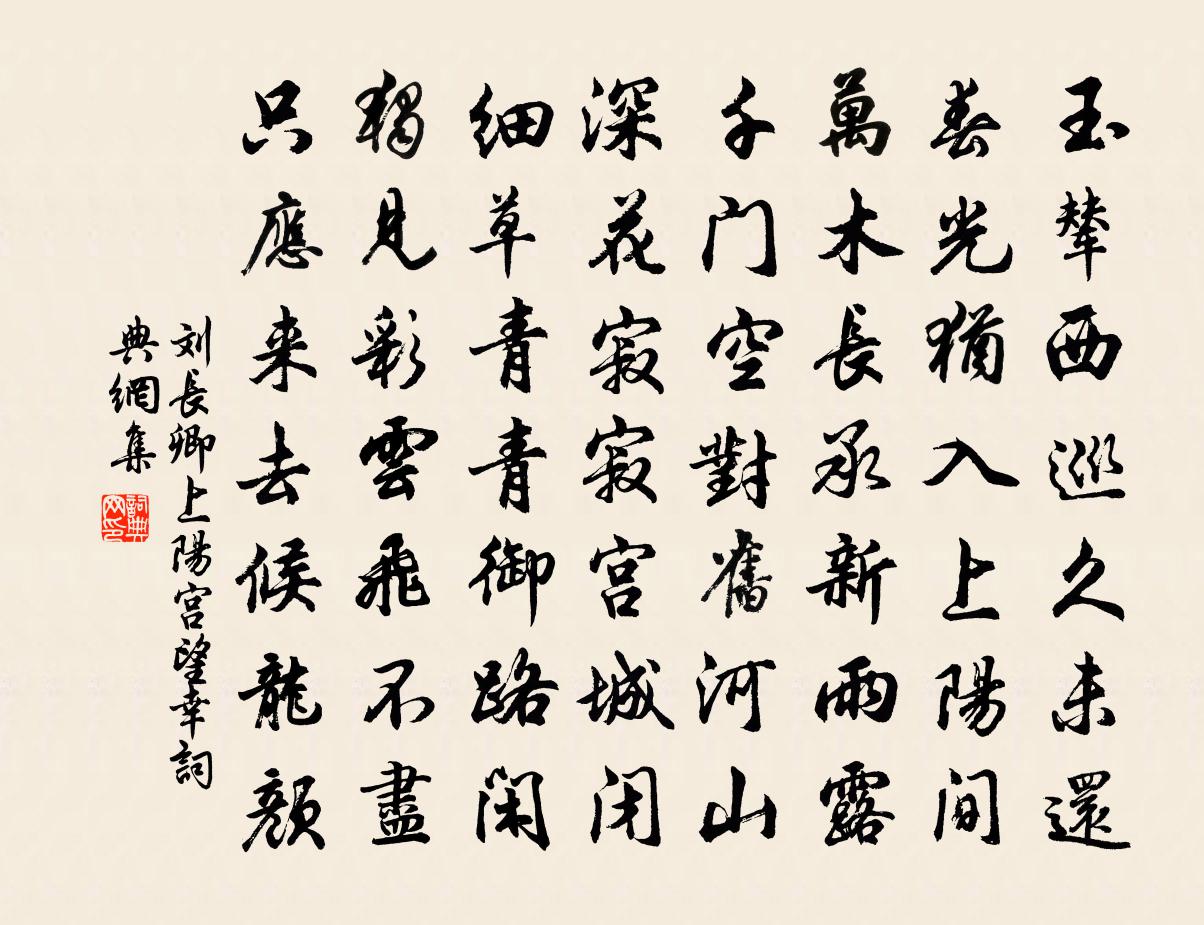 玉輦西巡久未還
春光猶入上陽間
萬木長承新雨露
千门空對舊河山
深花寂寂宮城闭
細草青青御路閑
獨見彩雲飛不盡
只應来去候龍顏
刘長卿上陽宮望幸詞
典網集
詞典网印